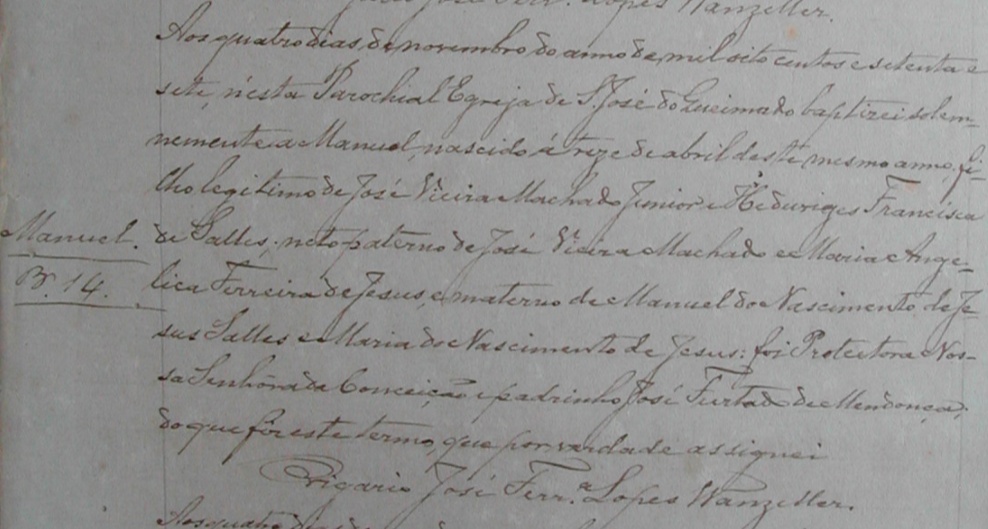 José Ferr. Lopes Wanzeller.
Aos quatro dias de novembro do anno de mil oito centos e setenta e
sete, nésta Parochial Egreja de S. José do Queimado baptizei solem-
nemente a Manuel, nascido á treze de abril deste mesmo anno, fi-
lho legitimo de José Vieira Machado Junior e Heduviges Francisca
de Salles; neto paterno de José Vieira Machado e Maria Ange-
Manuel.
B. 14.
lica Ferreira de Jesus, e materno de Manuel do Nascimento de Je-
sus Salles e Maria do Nascimento de Jesus: foi Protectora Nos-
sa Senhóra da Conceição e padrinho José Furtado de Mendonça;
do que fôr este termo, que por verdade assignei
Vigario José Ferr.ª Lopes Wanzeller.
Aos quatro dias de